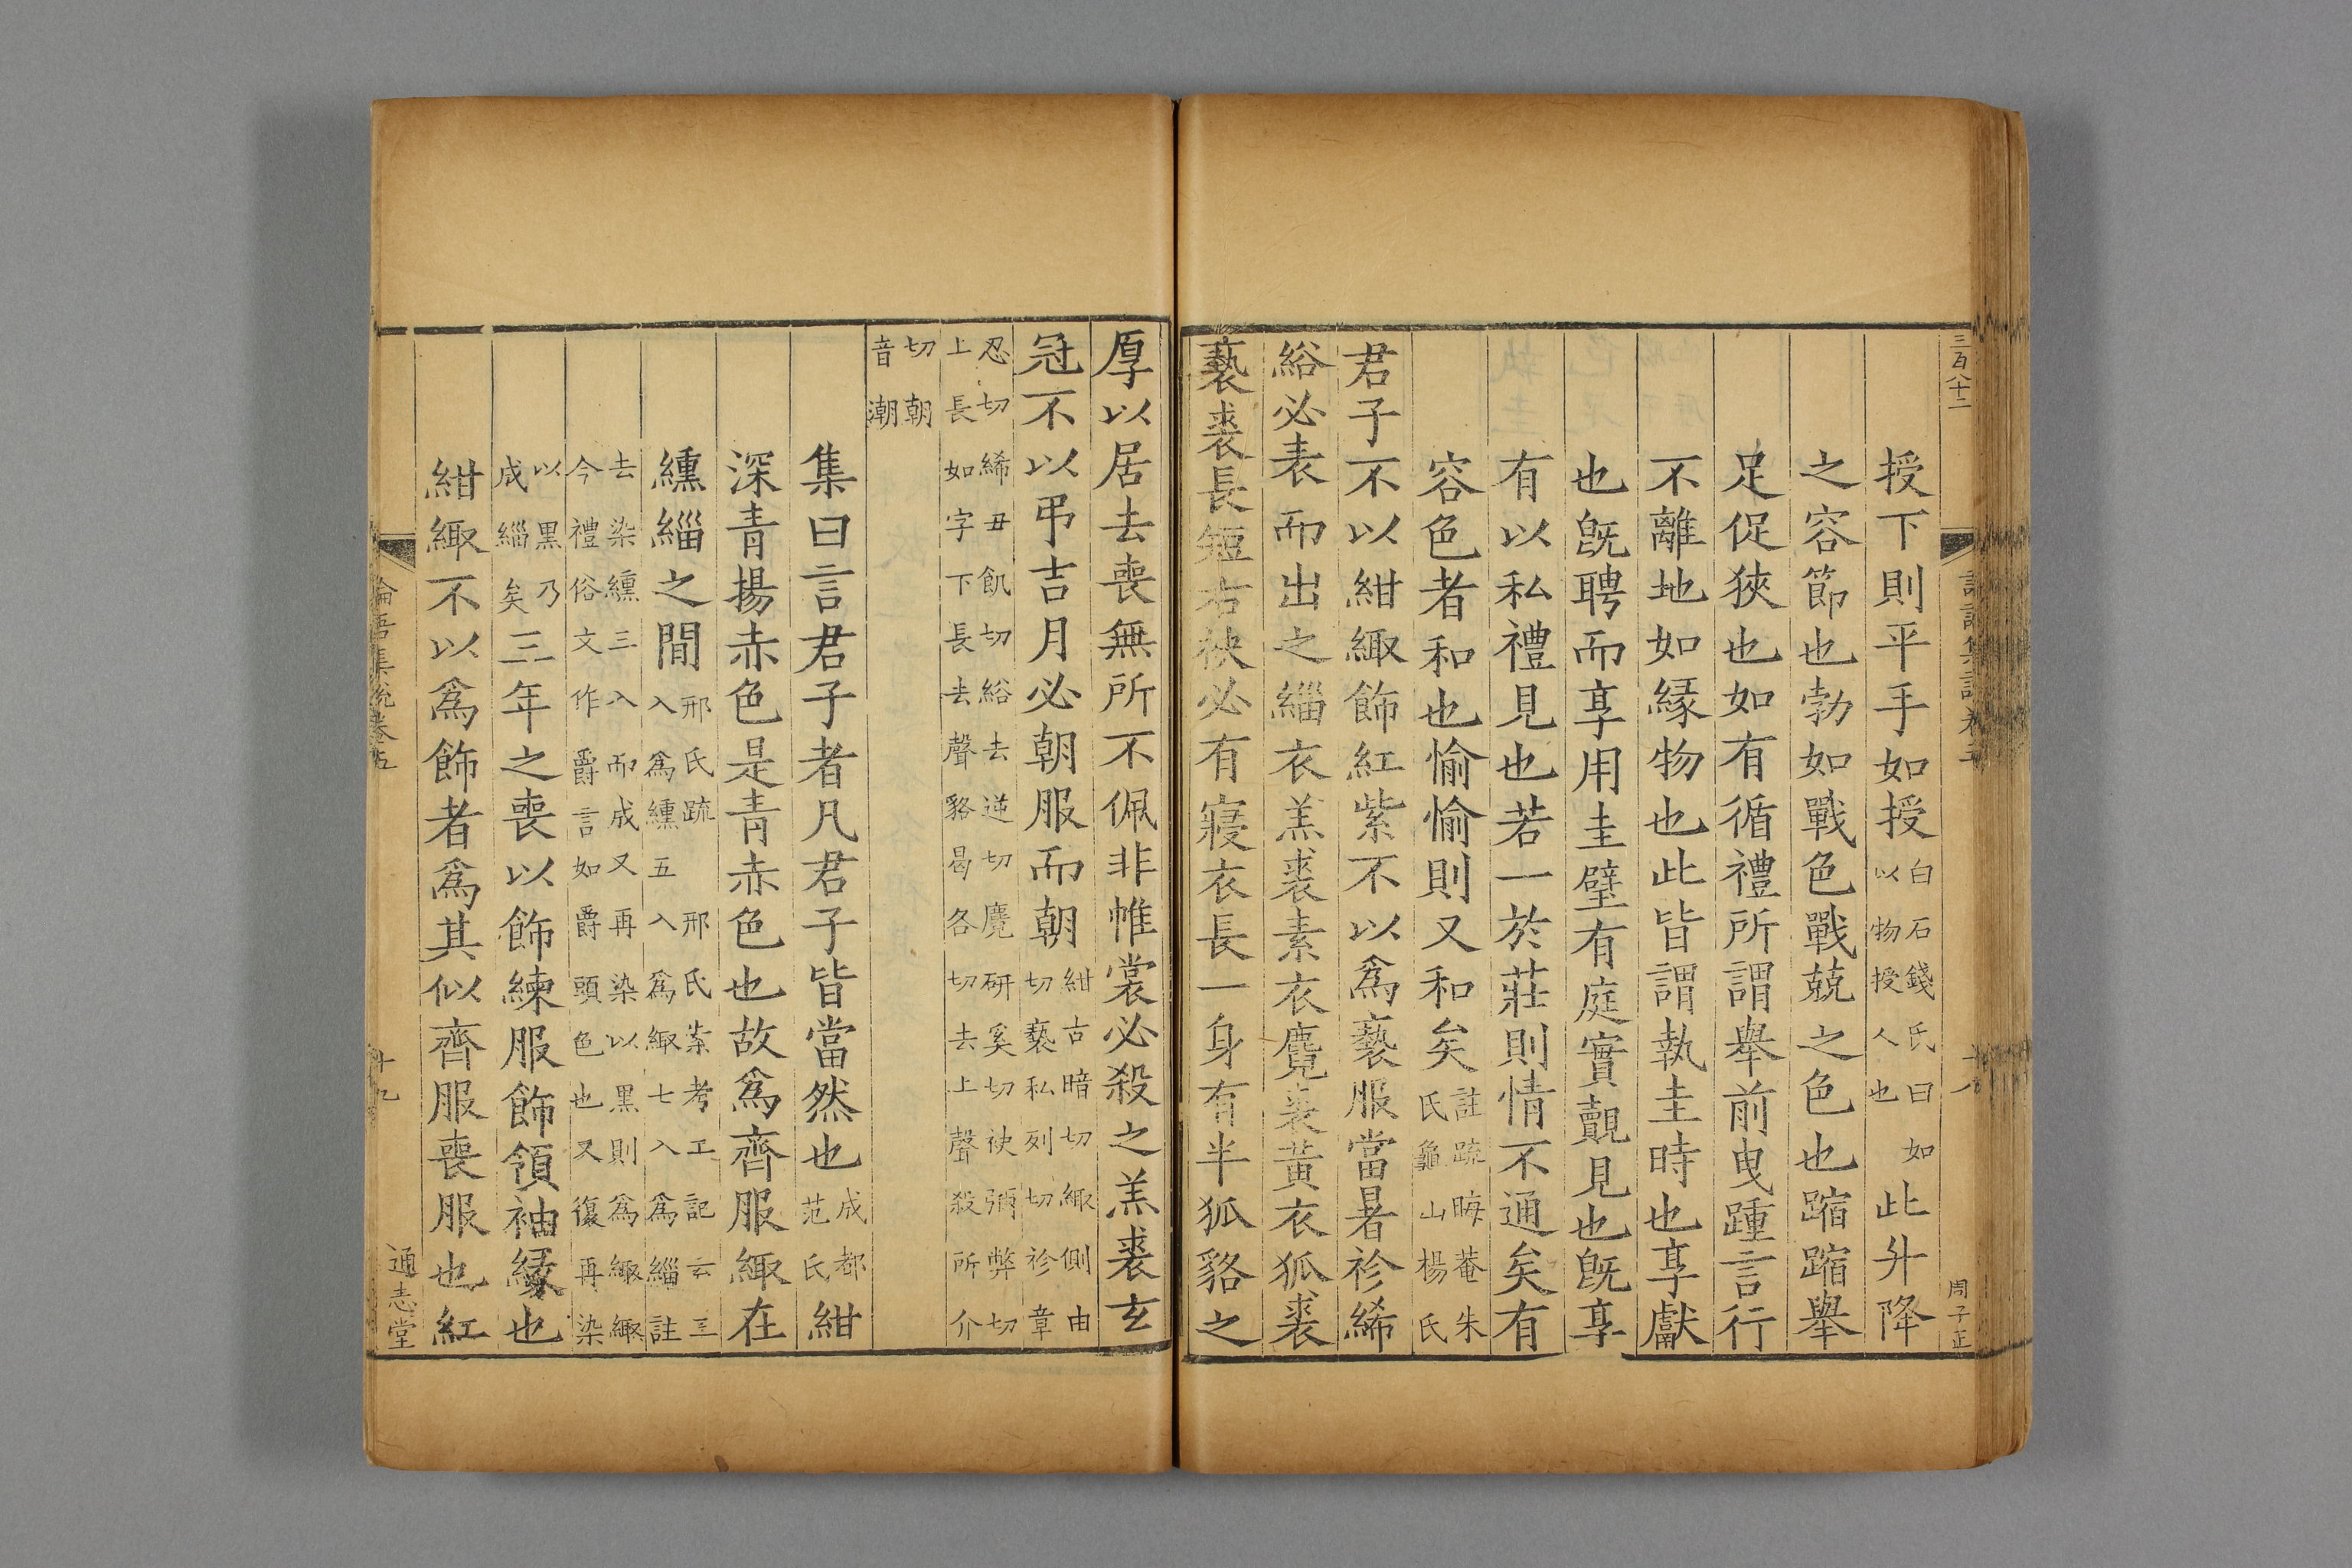 三百八十二
十八
周子正
授下則平手如授白石錢氏曰如以物授人也此升降
之容節也勃如戰色戰兢之色也蹜蹜舉
足促狹也如有循禮所謂舉前曳踵言行
不離地如緣物也此皆謂執圭時也享獻
也旣聘而享用圭璧有庭實覿見也旣享
有以私禮見也若一於莊則情不通矣有
容色者和也愉愉則又和矣註疏晦菴朱氏龜山楊氏
君子不以紺緅飾紅紫不以爲褻服當暑袗絺
綌必表而出之緇衣羔裘素衣麑裘黃衣狐裘
褻裘長短右袂必有寢衣長一身有半狐貉之
厚以居去喪無所不佩非帷裳必殺之羔裘玄
冠不以弔吉月必朝服而朝紺古暗切緅側由切褻私列切袗章
忍切絺丑飢切綌去逆切麑研奚切袂彌弊切上長如字下長去聲貉曷各切去上聲殺所介
切朝音潮
集曰言君子者凡君子皆當然也成都范氏紺
深青揚赤色是青赤色也故爲齊服緅在
纁緇之間邢氏疏入爲纁五入爲緅七入爲緇註邢氏案考工記云三
去染纁三入而成又再染以黑則爲緅緅今禮俗文作爵言如爵頭色也又復再染
以黑乃成緇矣三年之喪以飾練服飾領袖緣也
紺緅不以爲飾者爲其似齊服喪服也紅
論語集說卷五
十九
通志堂